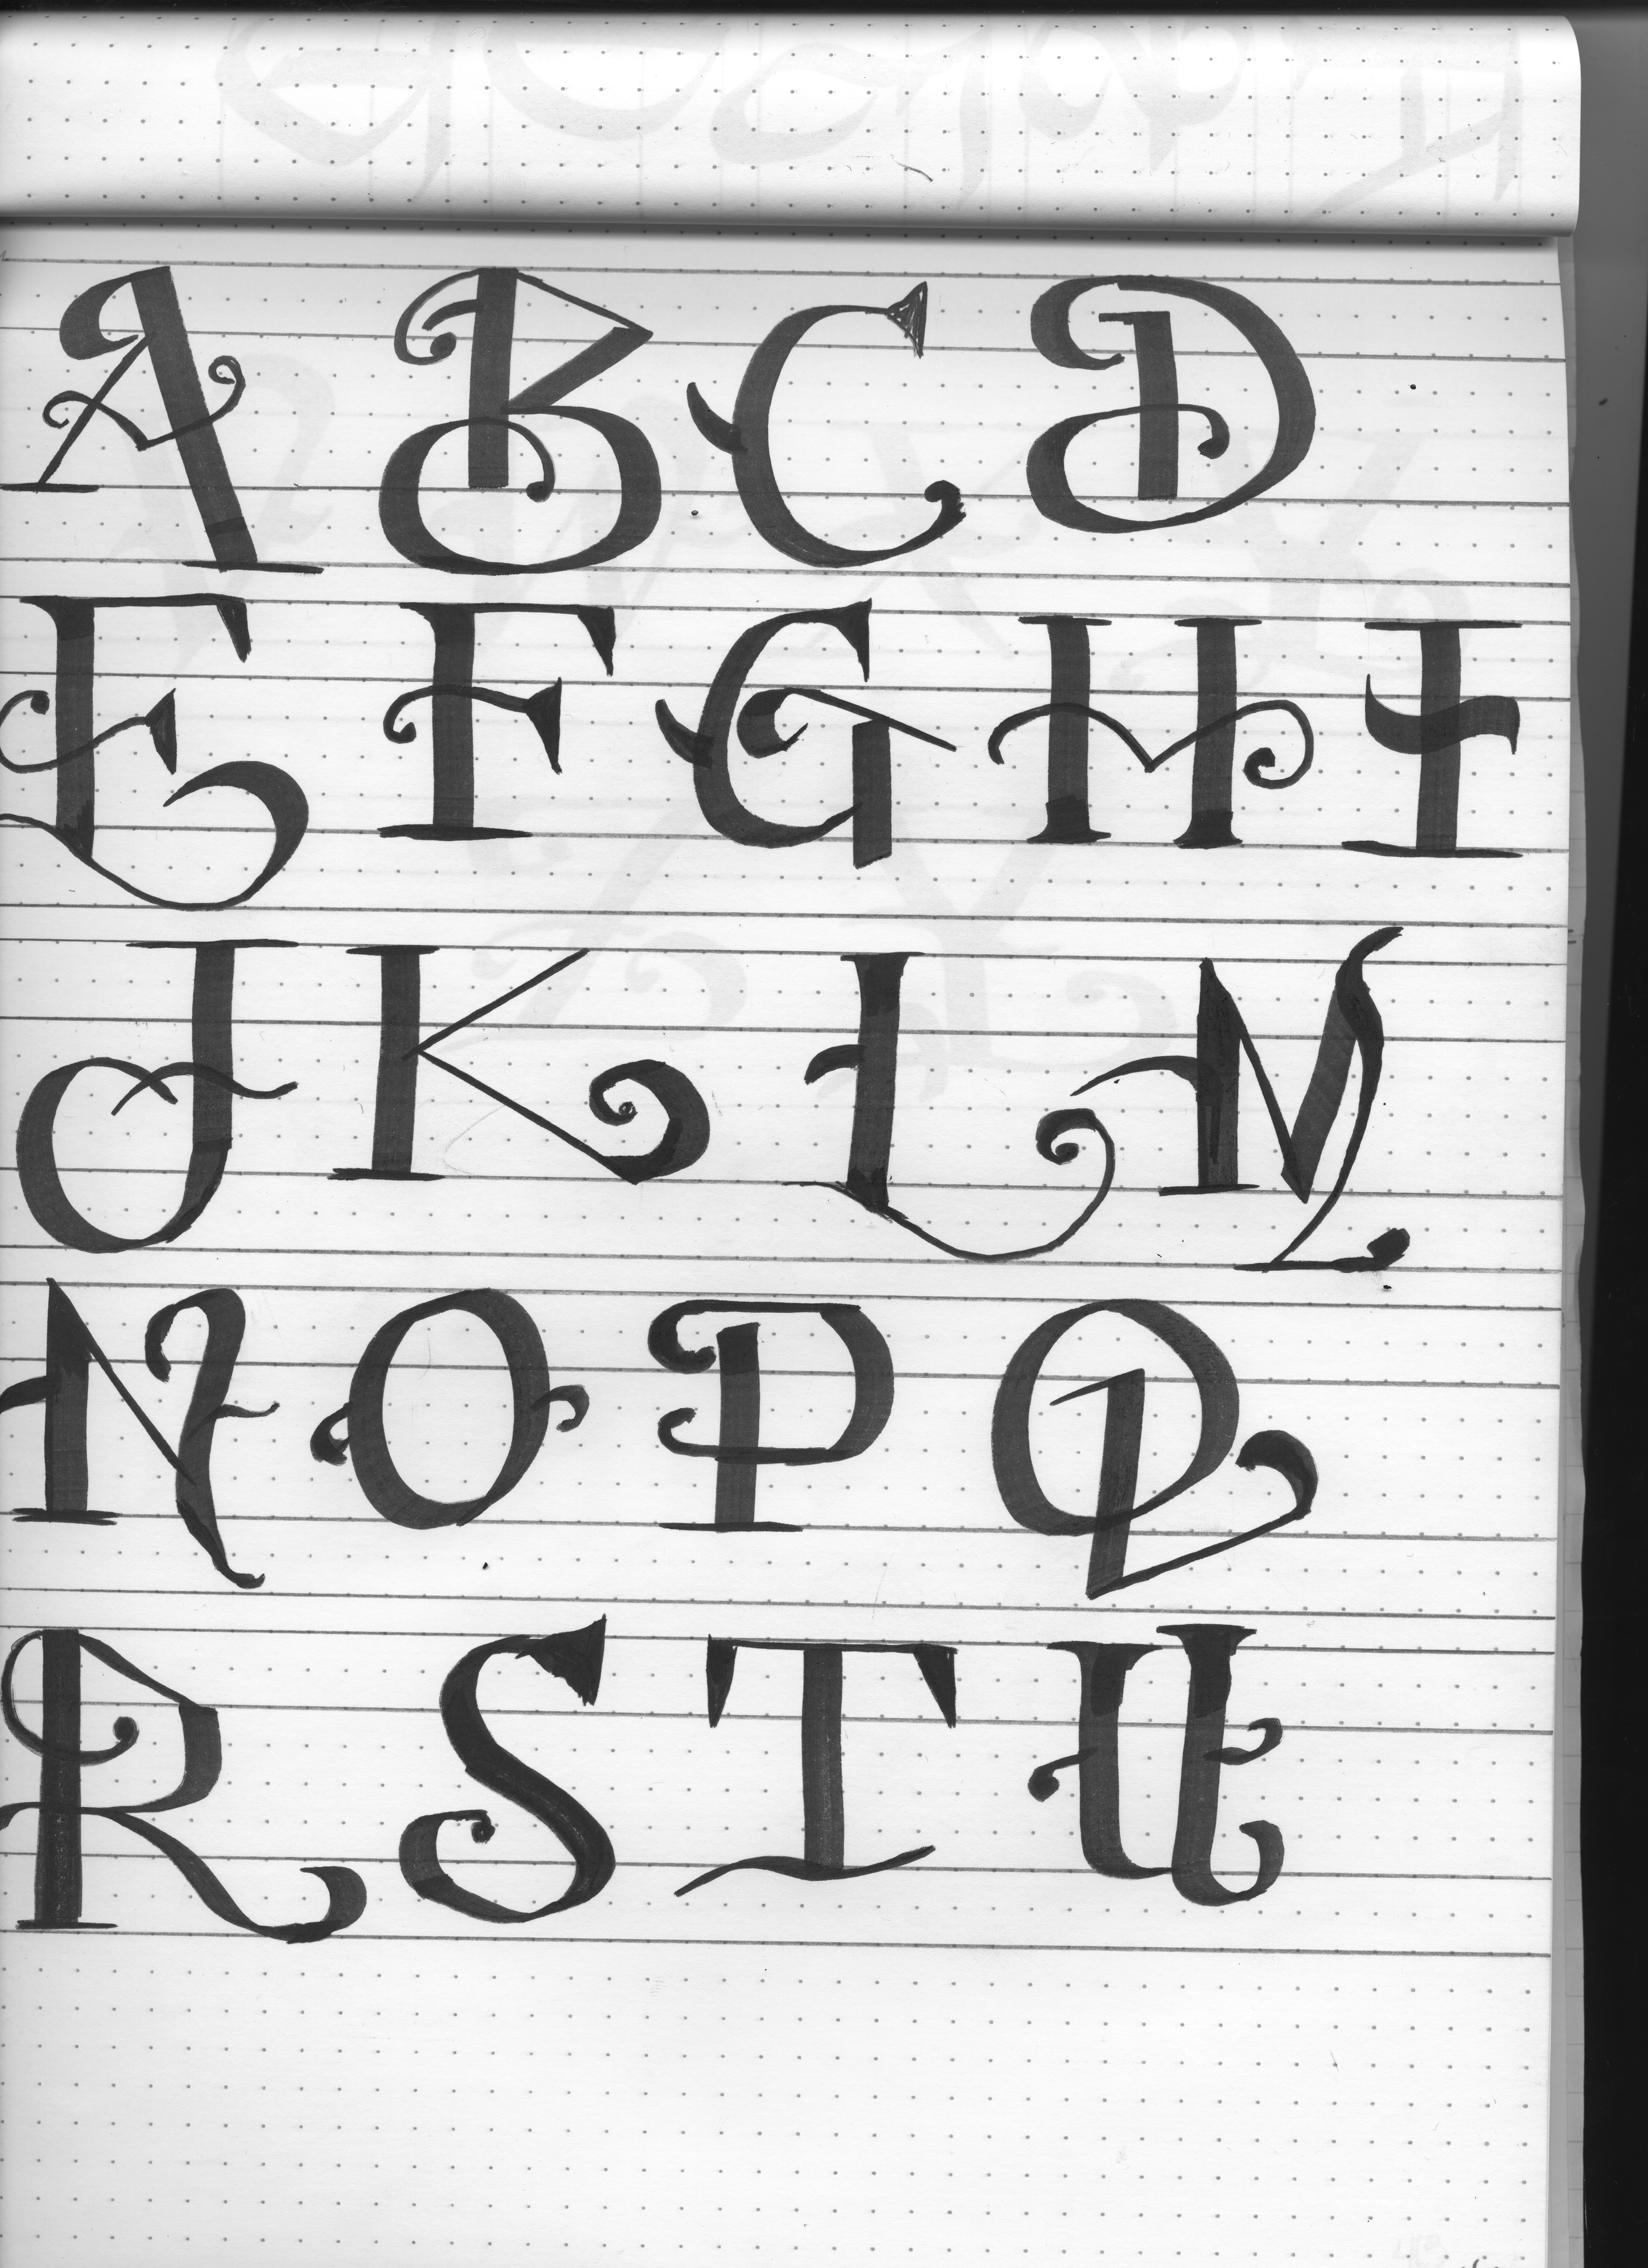 A B C D
E F G H I
J K L M
N O P Q
R S T U